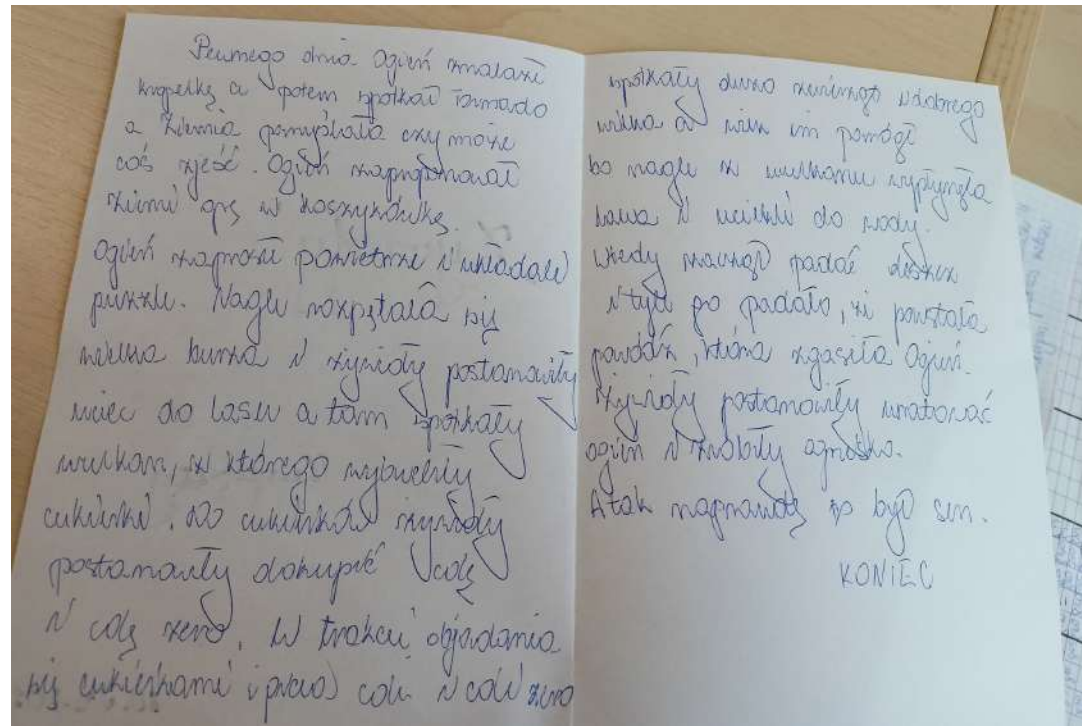 Pewnego dnia Ogień znalazł
kropelkę a potem spotkał tornado
a Ziemia pomyślała czy może
coś zjeść. Ogień zaproponował
Ziemi grę w koszykówkę.
Ogień zaprosił powietrze i układali
puzzle. Nagle rozpętała się
wielka burza i żywioły postanowiły
uciec do lasu a tam spotkały
wulkan, z którego wyjawiły
cukierki. Do cukierków żywioły
postanowiły dokupić colę
i colę zero. W trakcie objadania
się cukierkami i piciu coli i coli zero
spotkały dużo zwierząt i dobrego
wilka a wilk im pomógł
bo nagle z wulkanu wypłynęła
lawa i uciekli do wody.
Wtedy zaczął padać deszcz
i tyle po padało, że powstała
powódź, która zgasiła Ogień.
Żywioły postanowiły uratować
ogień i zrobiły ognisko.
A tak naprawdę to był sen.
KONIEC